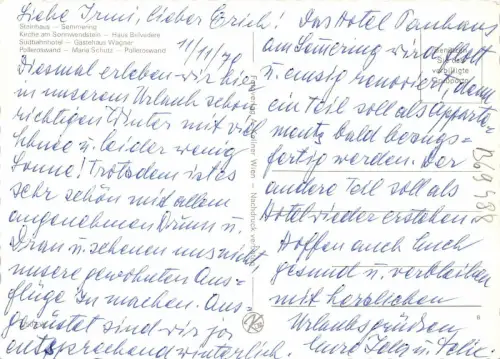 Steinhaus — Semmering
Kirche am Sonnwendstein — Haus Belvedere
Südbahnhotel — Gästehaus Wagner
Polleroswand — Maria Schutz — Polleroswand
Liebe Irmi, lieber Erich!
11/11/78
Diesmal erleben wir hier
in unserem Urlaub schon
richtigen Winter mit viel
Schnee u. leider wenig
Sonne! Trotzdem ist es
sehr schön mit allem
angenehmen Drum u.
Dran u. scheuen uns nicht,
unsere gewohnten Aus-
flüge zu machen. Aus-
gerüstet sind wir ja
entsprechend winterlich.
Wien — Nachdruck
Das Hotel Panhans
am Semmering wird flott
u. emsig renoviert, denn
ein Teil soll als Apparte-
ments bald bezugs-
fertig werden. Der
andere Teil soll als
Hotel wieder erstehen.
Hoffen auch Euch
gesund u. verbleiben
mit herzlichen
Urlaubsgrüßen
Eure
verbilligte
B69488
6